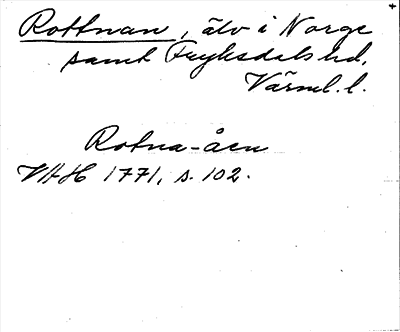 Rottnan, älv i Norge
samt Fryksdals hd,
Värml. l.
Rotna-åen
VAH 1771, s. 102.